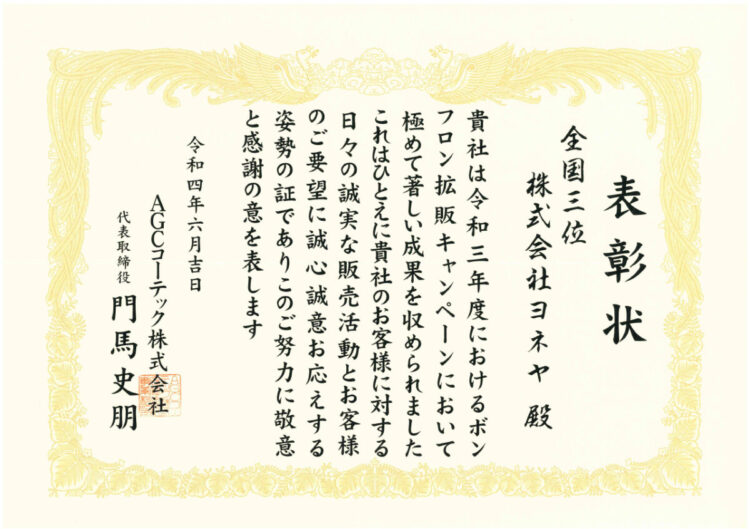 表彰状
全国三位
株式会社ヨネヤ 殿
貴社は令和三年度におけるボン
フロン拡販キャンペーンにおいて
極めて著しい成果を収められました
これはひとえに貴社のお客様に対する
日々の誠実な販売活動とお客様
のご要望に誠心誠意お応えする
姿勢の証でありこのご努力に敬意
と感謝の意を表します
令和四年六月吉日
AGCコーテック株式会社
代表取締役 門馬史朋